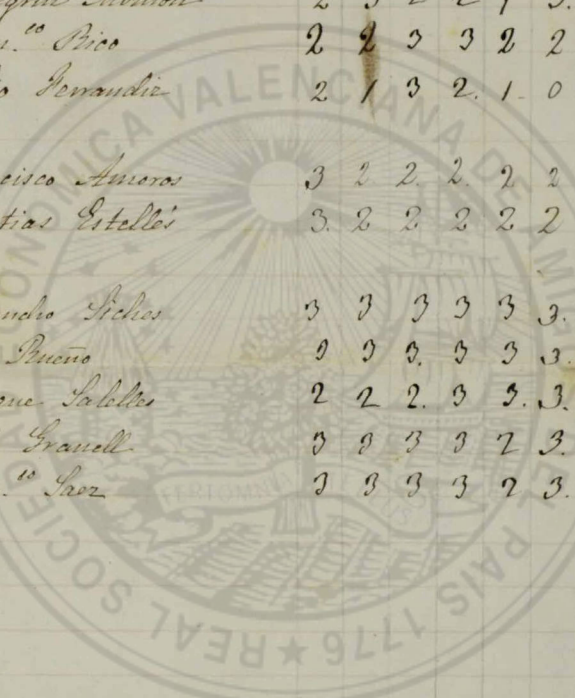 2 3 2 2 1 3.
n.co Rico 2 2 3 3 2 2
o Ferrandiz 2 1 3 2. 1. 0
cisco Amoros 3 2 2. 2. 2 2
tias Estellés 3. 2 2 2 2 2
ndro Siches 3 3 3 3 3 3.
Rueño 3 3 3. 3 3 3.
que Salelles 2 2 2. 3 3. 3.
Granell 3 3 3 3 2 3.
.co Saez 3 3 3 3 2 3.
REAL SOCIEDAD ECONOMICA VALENCIANA DE AMIGOS DEL PAIS 1776